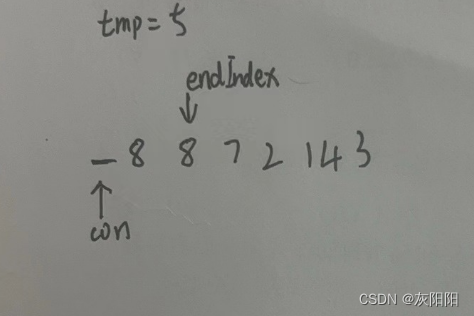 tmp = 5
endIndex
_ 8 8 7 2 1 4 3
con
CSDN @灰阳阳